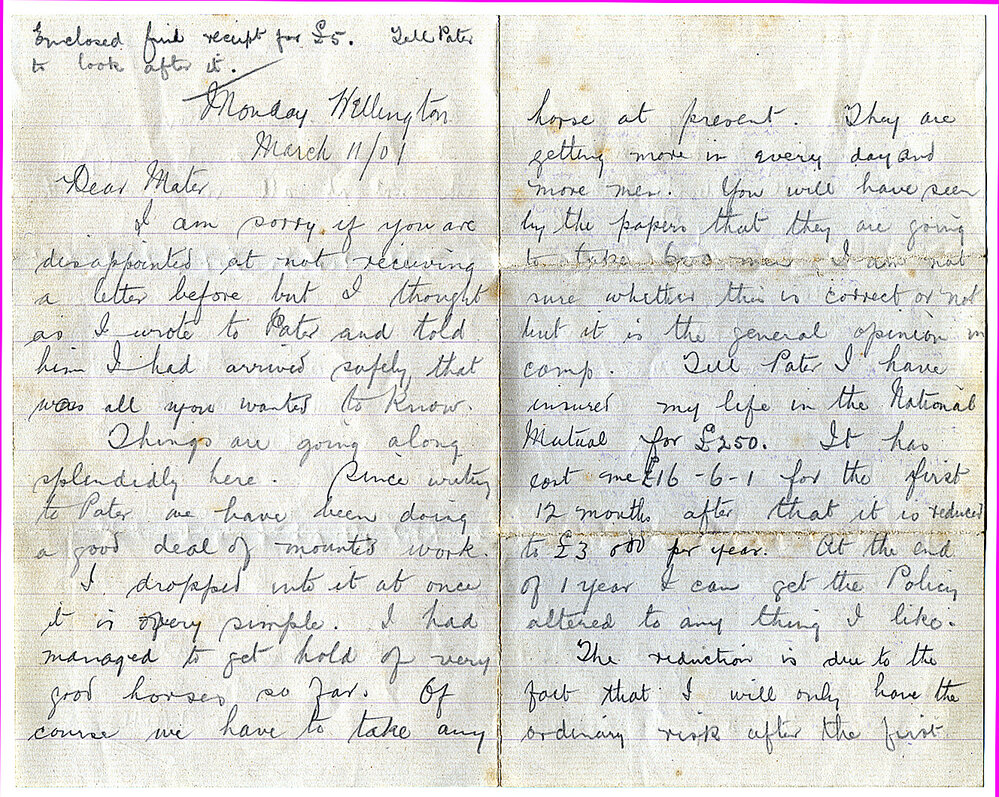 Enclosed find receipt for £5. Tell Pater
to look after it.
Monday. Wellington
March 11/01
Dear Mater
I am sorry if you are
disappointed at not receiving
a letter before but I thought
as I wrote to Pater and told
him I had arrived safely that
was all you wanted to know.
Things are going along
splendidly here. Since writing
to Pater we have been doing
a good deal of mounted work.
I dropped into it at once
it is very simple. I had
managed to get hold of very
good horses so far. Of
course we have to take any
horse at present. They are
getting more in every day and
more men. You will have seen
by the papers that they are going
to take 600 men I am not
sure whether this is correct or not
but it is the general opinion in
camp. Tell Pater I have
insured my life in the National
Mutual for £250. It has
cost me £16-6-1 for the first
12 months after that it is reduced
to £3 odd per year. At the end
of 1 year I can get the Policy
altered to any thing I like.
The reduction is due to the
fact that I will only have the
ordinary risk after the first